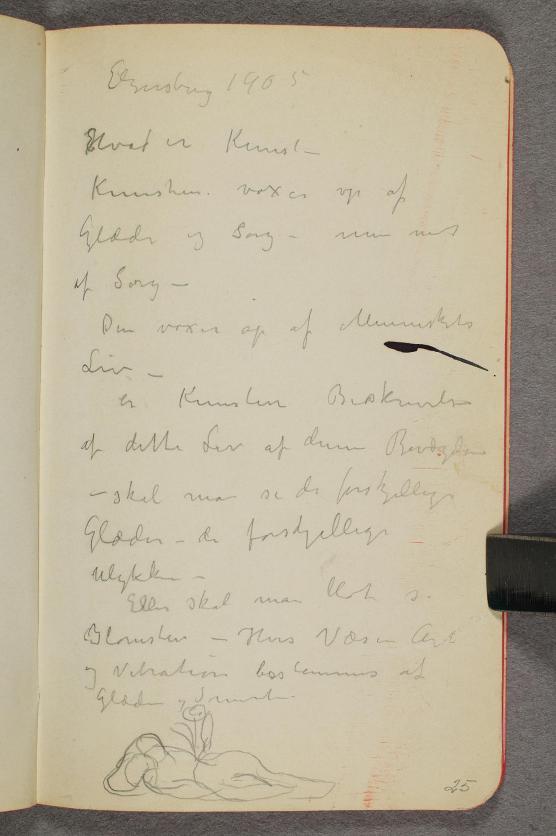 Elgersburg 1905
Hvad er Kunst –
Kunsten voxer op af
Glæde og Sorg – men mest
af Sorg –
Den voxer op af Menneskets
Liv –
er Kunsten Beskrivelse
af dette Liv af denne Bevægelse
– skal man se de forskjellige
Glæder – de forskjellige
Ulykker –
Eller skal man blot se
Blomsten – Hvis Væsen Art
og Vibration bestemmes af
Glæden og Smerten
25